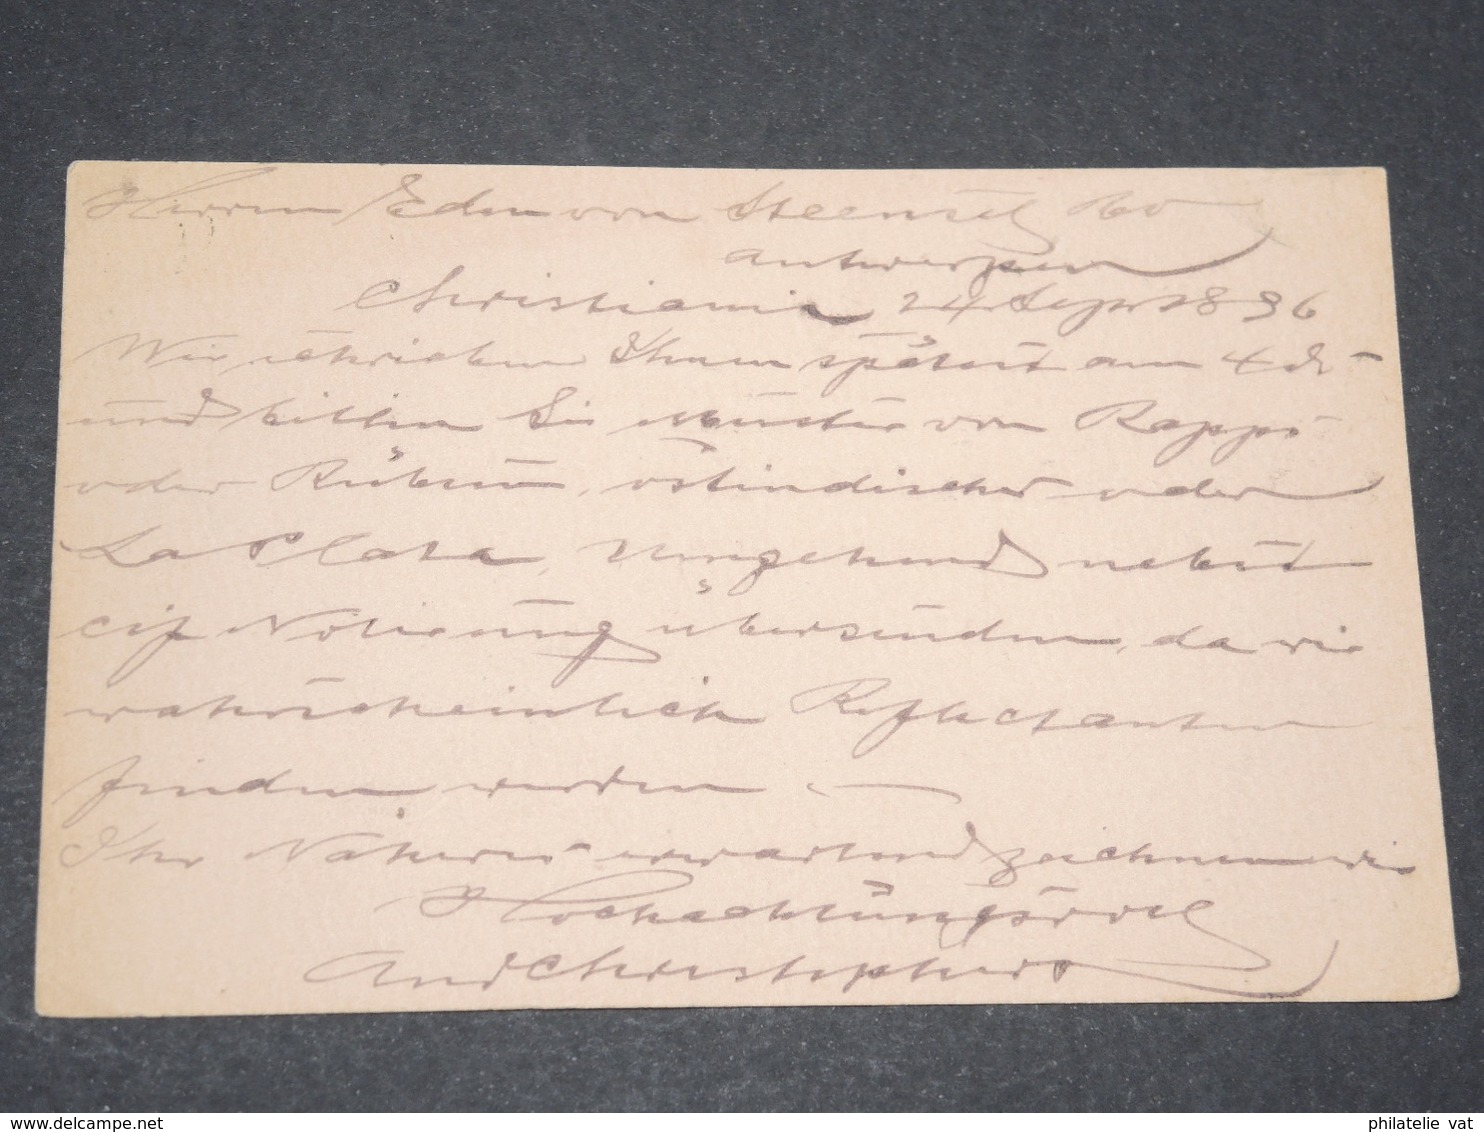 Herrn Edm von Steensel Co
Antwerpen
Christiania 24 Sept 1896
Wir schrieben Ihnen spätest am 4 ds
und bitten Sie Muster von Rapps
oder Rübsen, ostindischer oder
La Plata, umgehend nebst
cif Notierung übersenden, da wir
wahrscheinlich Reflectanten
finden werden. —
Ihr Näheres erwartend zeichnen wir
Hochachtungsvoll
And Christophersen
www.delcampe.net
philatelie vat